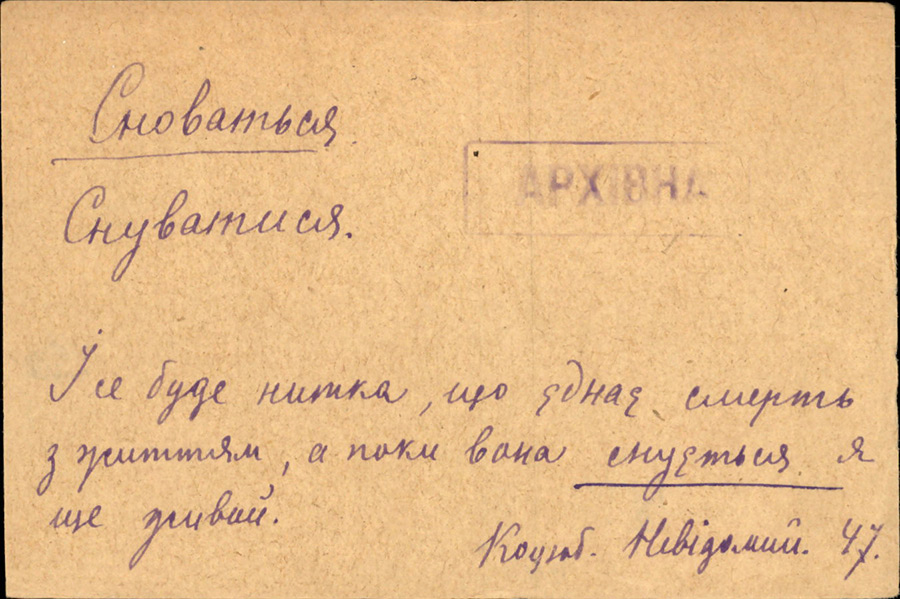 Сноваться
АРХІВНА
Снуватися.
І се буде нитка, що єднає смерть
з життям, а поки вона снується я
ще живий.
Коцюб. Невідомий. 47.